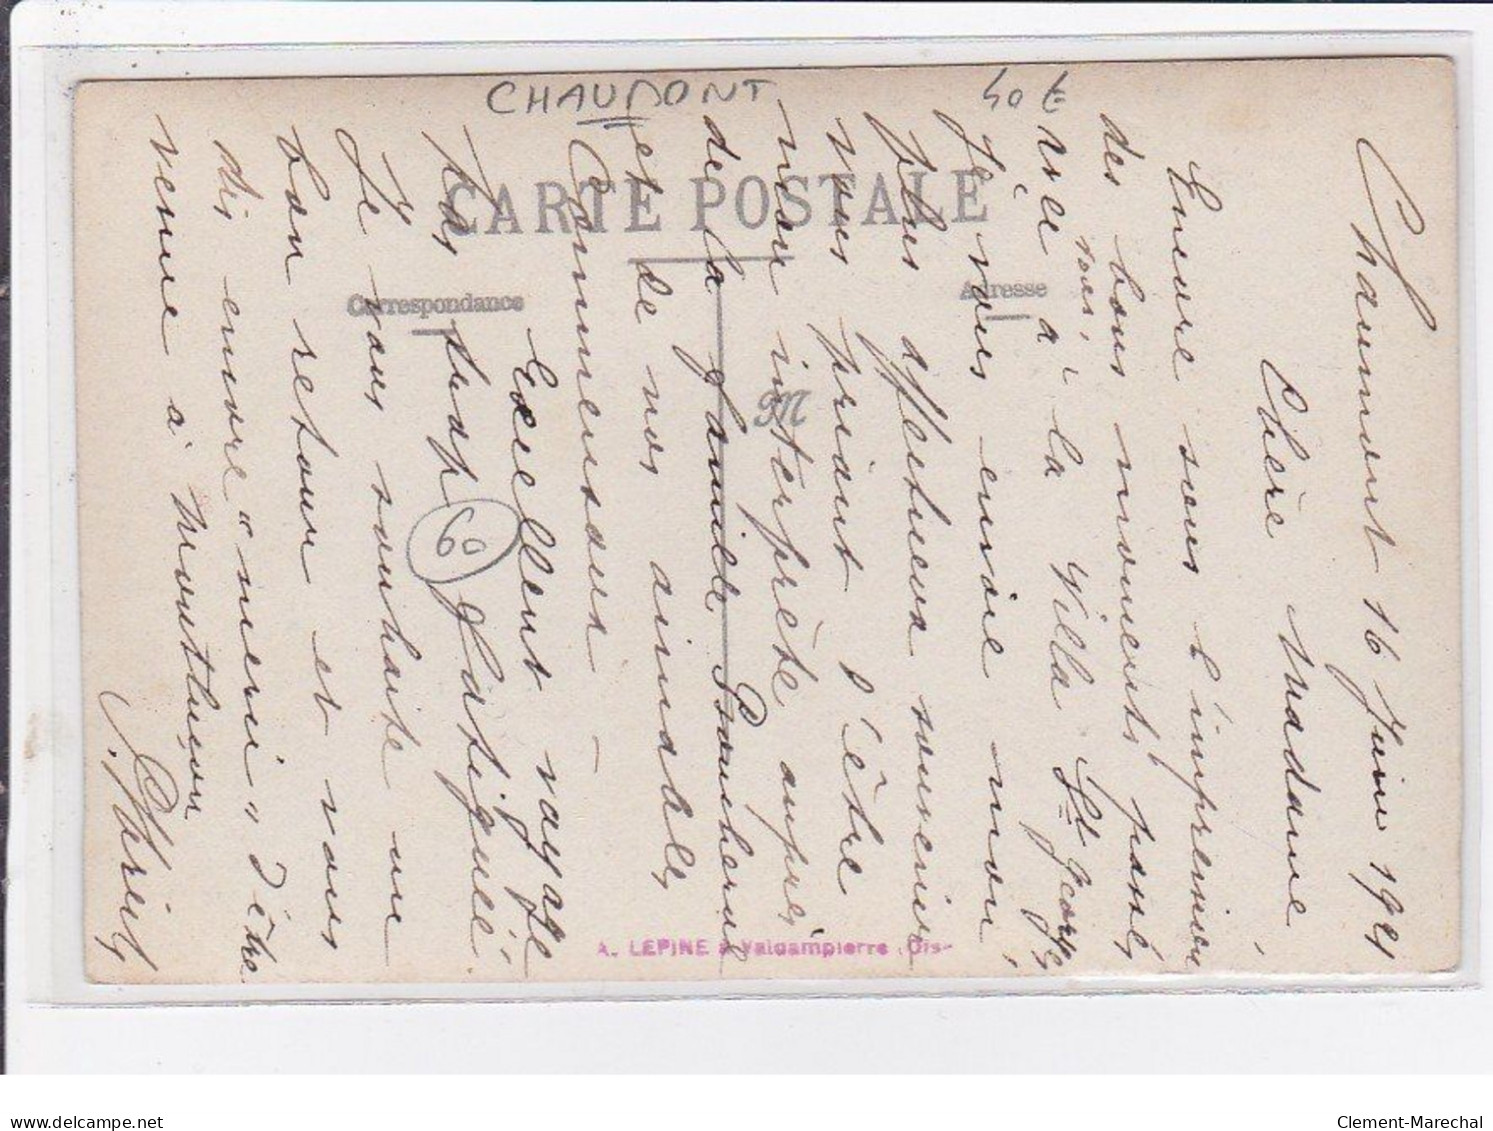 CHAUMONT
40 €
CARTE POSTALE
Correspondance
Adresse
M
60
Chaumont 16 Juin 1921
Chère Madame,
Encore sous l'impression
des bons moments passés
à la Villa St Georges
Je vous envoie mon
plus affectueux souvenir
vous priant d'être
mon interprète auprès
de la famille
et de nos aimables
Commensaux –
Excellent voyage
pas trop fatiguée,
Je vous souhaite un
bon retour et vous
dis encore "merci" d'être
venue à Montluçon
A. LEPINE à Valdampierre (Oise
delcampe.net
Clement-Marechal